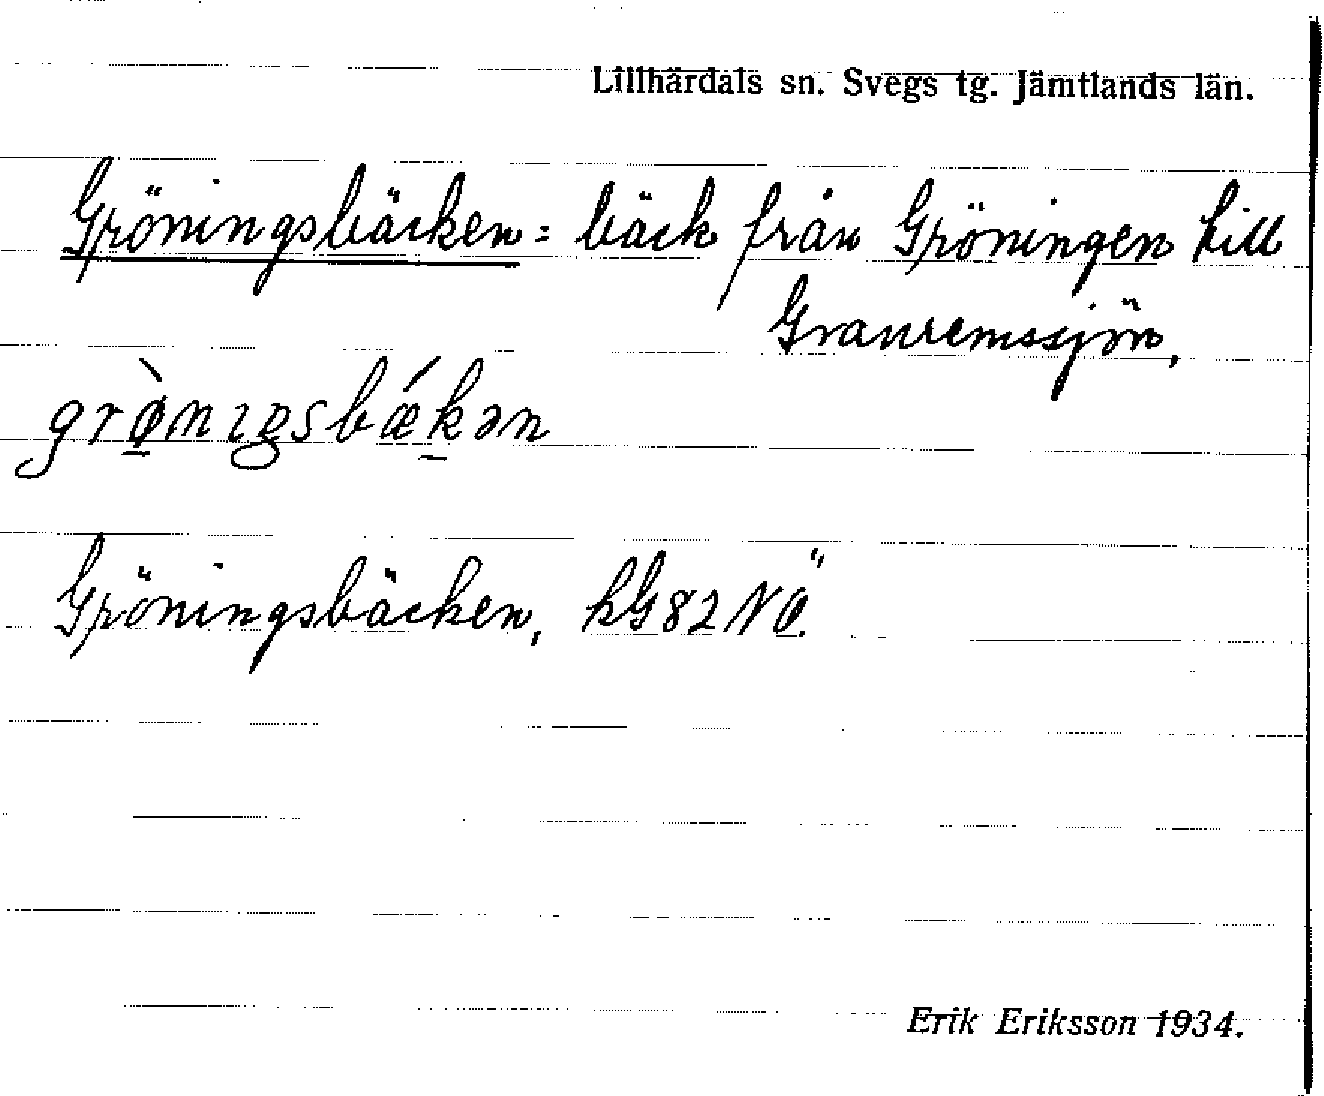 Lillhärdals sn. Svegs tg. Jämtlands län.
Gröningsbäcken = bäck från Gröningen till
Granremssjön,
grø̀nıgsbǽkən
Gröningsbäcken, kG82NÖ.
Erik Eriksson 1934.